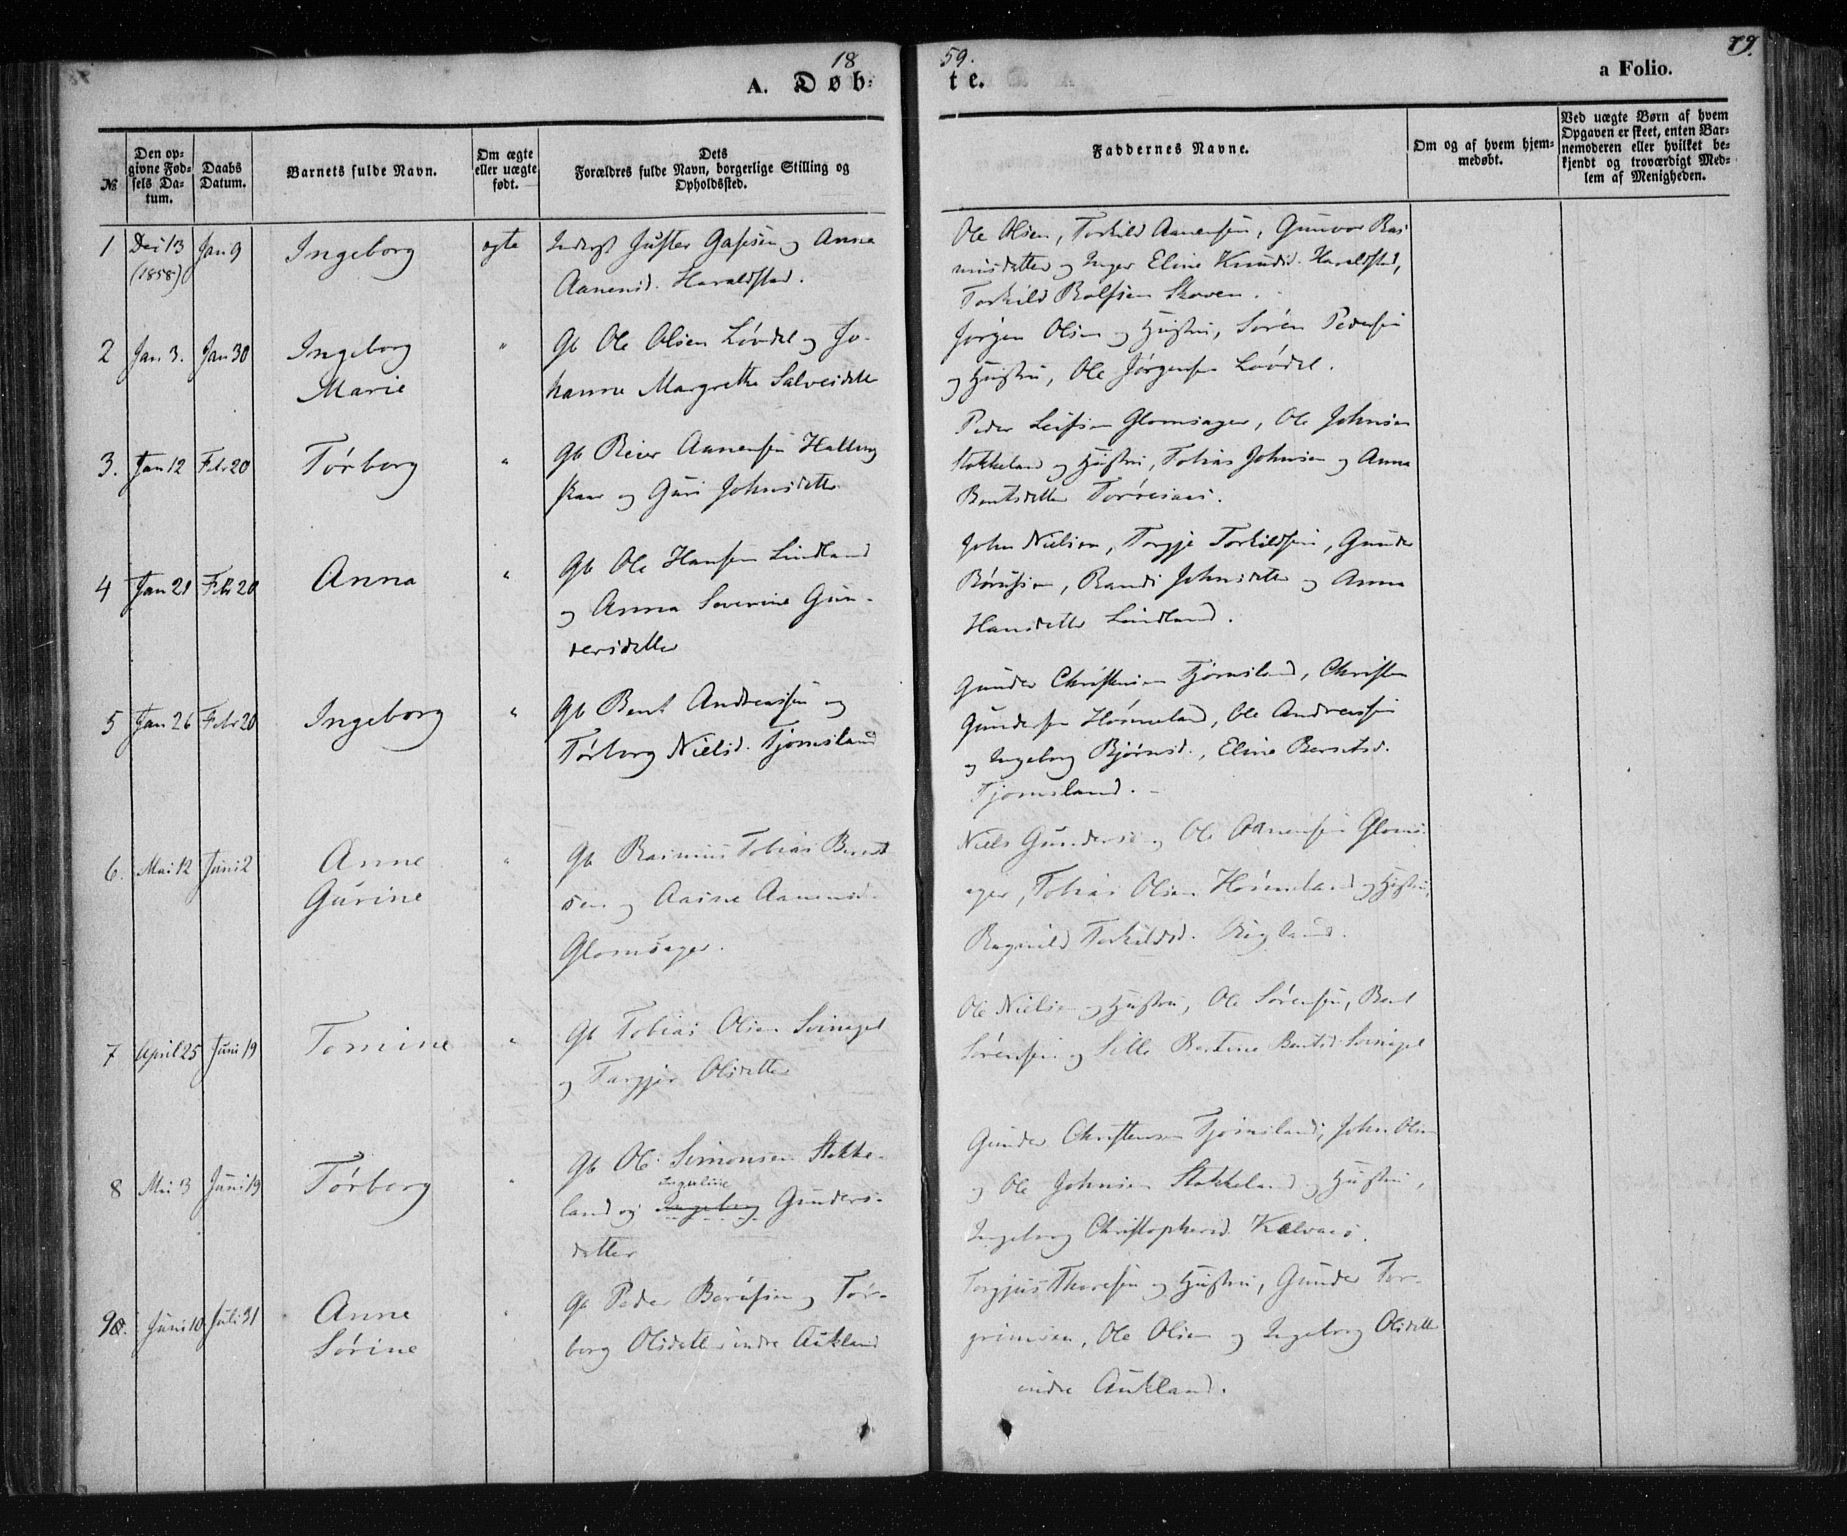 18 59.
79.
A. Døb-
te.
a Folio.
№
Den opgivne Fødsels Datum.
Daabs Datum.
Barnets fulde Navn.
Om ægte eller uægte født.
Dets Forældres fulde Navn, borgerlige Stilling og Opholdssted.
Faddernes Navne.
Om og af hvem hjemmedøbt.
Ved uægte Børn af hvem Opgaven er skeet, enten Barnemoderen eller hvilket bekjendt og troværdigt Medlem af Menigheden.
1 Dei 13 (1858) Jan 9 Ingeborg ægte
Anna
Aanensd. Haraldstad.
Ole Olsen, Torkild Aanensen, Gunvor Ras
musdatter og Inger Eline Knudsd. Haraldstad,
Torkild Rolfsen Skoven.
2 Jan 3. Jan 30 Ingeborg "
Marie
Gb Ole Olsen Løvdal og Jo-
hanne Margrethe Salvesdatter
Jørgen Olsen og Hustru, Søren Pedersen
og Hustru, Ole Jørgensen Løvdal.
3. Jan 12 Febr 20 Tørborg "
Gb Reier Aanensen Halling
skaar og Guri Johnsdatter
Peder Leifsen Glomsager, Ole Johnsen
Stokkeland og Hustru, Tobias Johnsen og Anna
Bentsdatter
4 Jan 21 Febr 20 Anna "
Gb Ole Hansen Lindland
og Anna Severine Gun-
dersdatter
John Nielsen, Torgje Torkildsen, Gunder
Børufsen, Randi Johnsdatter og Anna
Hansdatter Lindland.
5 Jan 26 Febr 20 Ingeborg "
Gb Bent Andreassen og
Tørborg Nielsd. Tjomsland
Gunder Christensen Tjomsland, Christen
Gundersen Høimeland, Ole Andreassen
og Ingeborg Bjørnsd., Eline Berntsd.
Tjomsland.
6. Mai 12 Juni 2 Anne "
Gurine
Gb Rasmus Tobias Bernt
sen og Aasne Aanensd.
Glomsager.
Niels Gunders og Ole Aanensen Gloms
ager, Tobias Olsen Høimeland og Hustru,
Ragnild Torkildsd.
7 April 25 Juni 19 Tomine "
Gb Tobias Olsen Svinepol
og Targjer Olsdatter
Ole Nielsen og Hustru, Ole Sørensen, Bent
Sørensen og Sille Bertine Bentsd.
8 Mai 3 Juni 19 Tørborg "
Gb Ole Simonsen Stokke-
Ingerline
land og Ingeborg Gunders-
datter
Gunder Christensen Tjomsland, John Olsen
og Ole Johnsen Stokkeland og Hustru,
Ingeborg Christophersd. Kalvaas.
9. Juni 10 Juli 31 Anne "
Sørine
Gb Peder Børufsen og Tør-
borg Olsdatter indre Aukland
Torgjus Thoresen og Hustru, Gunder Tor-
grimsen, Ole Olsen og Ingeborg Olsdatter
indre Aukland.